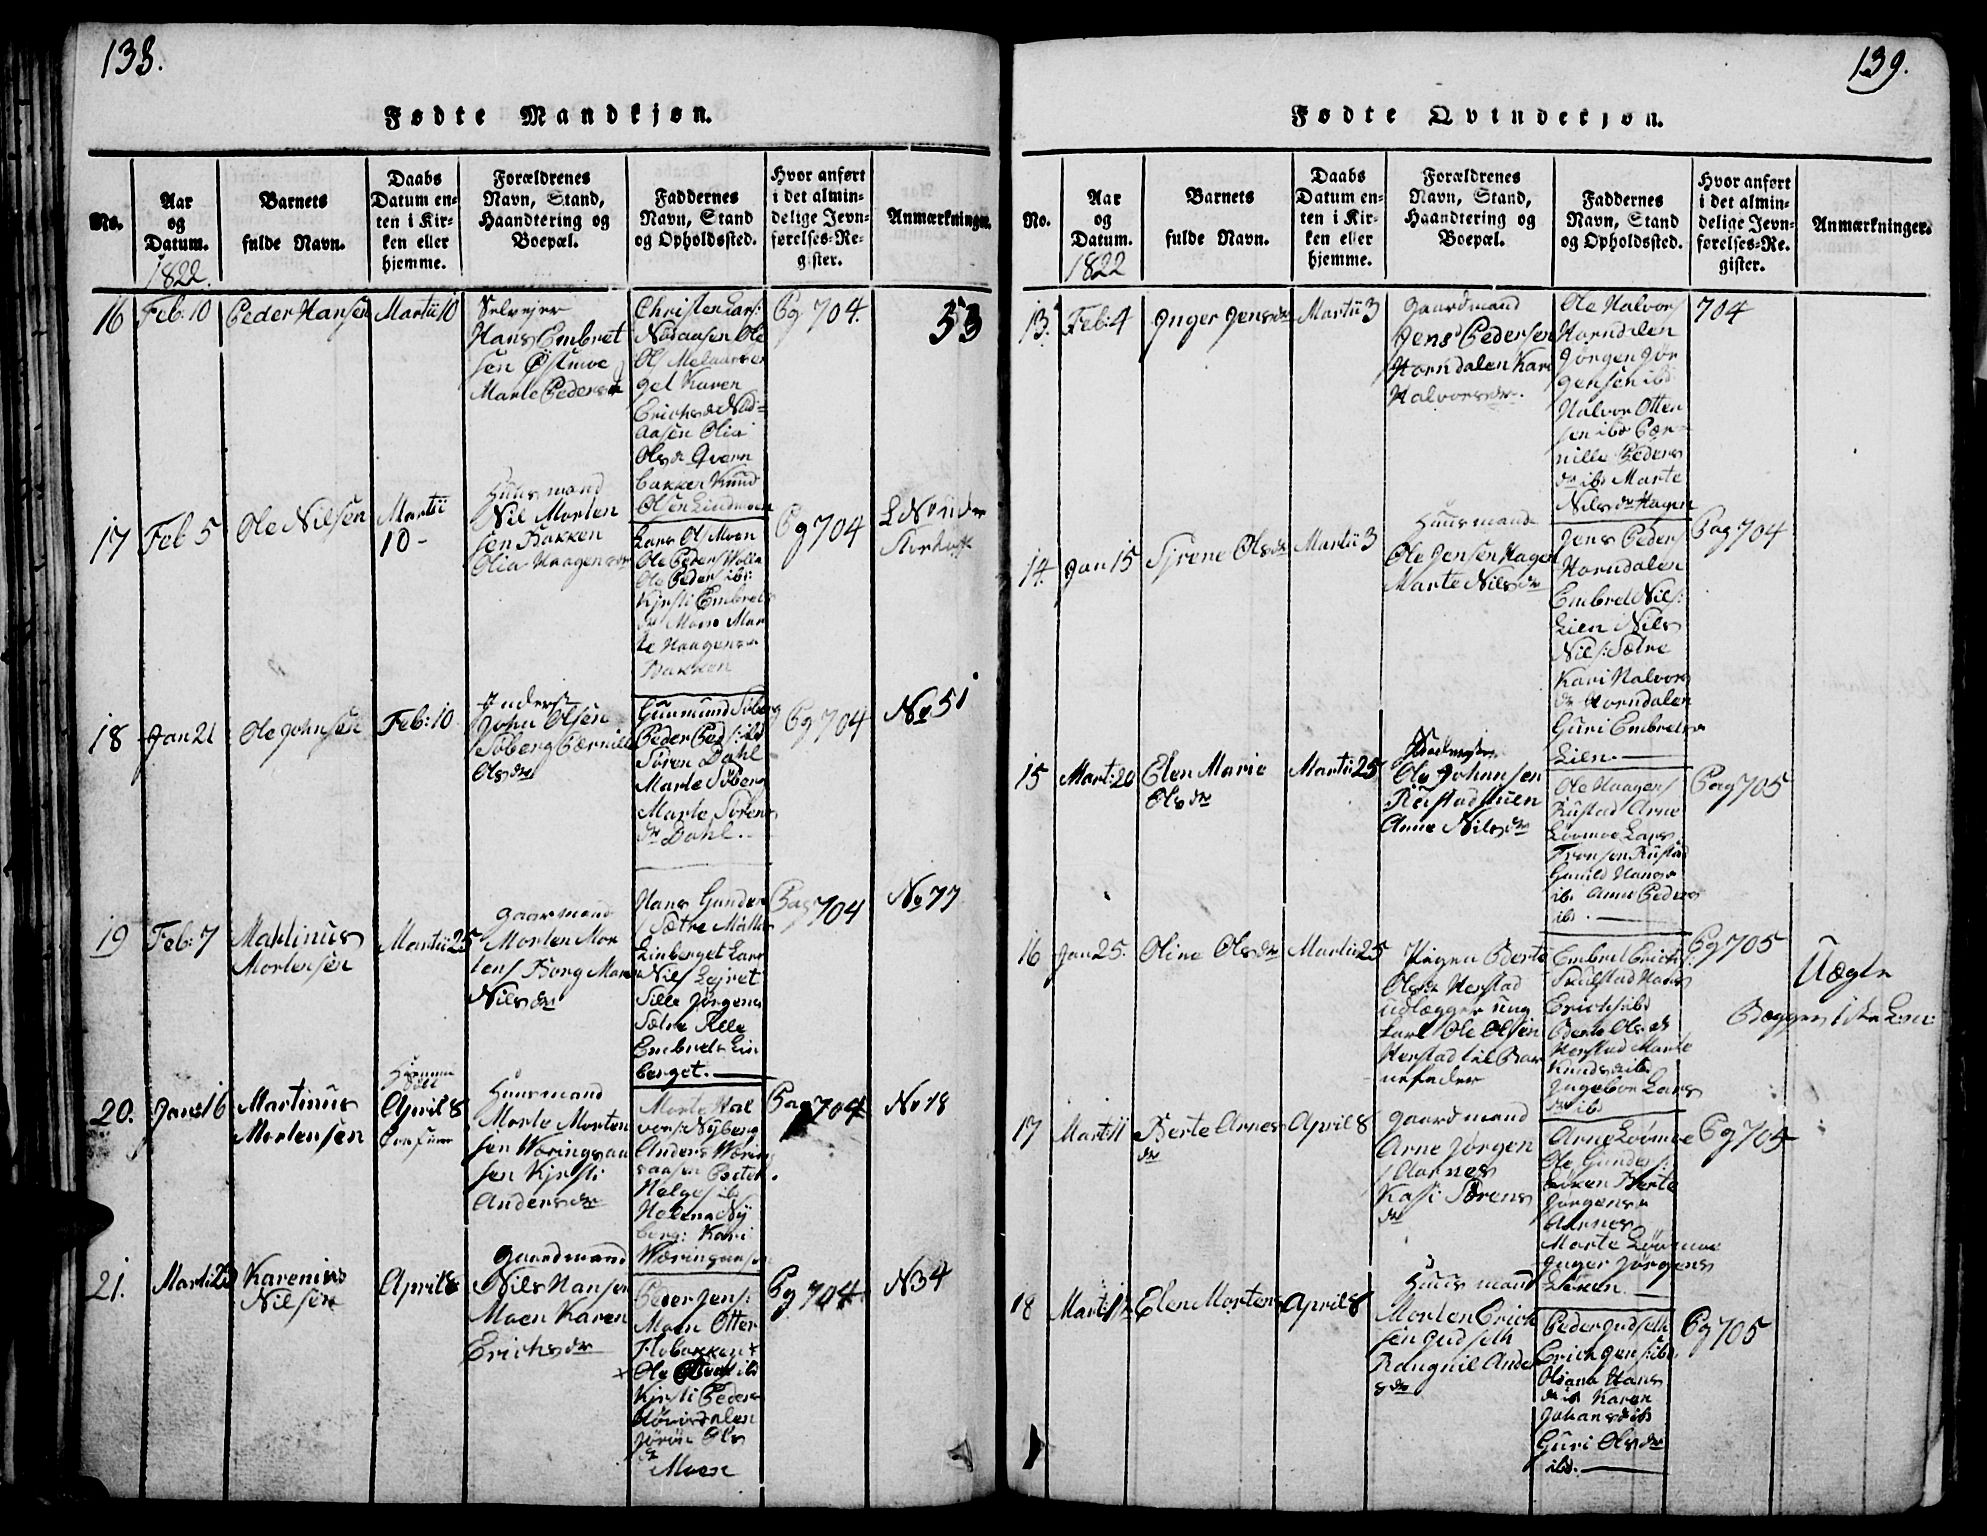 138.
Fødte Mandkjøn.
No.
Aar
og
Datum.
1822.
Barnets
fulde Navn.
Daabs
Datum en-
ten i Kir-
ken eller
hjemme.
Forældrenes
Navn, Stand,
Haandtering og
Boepæl.
Faddernes
Navn, Stand
og Opholdssted.
Hvor anført
i det almin-
delige Jevn-
førelses-Re-
gister.
Anmærkninger.
16
Feb: 10
Peder Hansen
Martii 10
Selveier
Hans Embret
sen Østmoe
Marte Peders
Christen Lars:
Nordaasen Ole
Ols
get Karen
Erichsdr
aasen Olia
Olsdr Qvern
bakken Knud
Olsen Lindmoen
Pg 704.
53
17
Feb 5
Ole Nilsen
Martii
10-
Huusmand
Nil Morten
sen Bakken
Olia Haagensdr
Lars Ols Moen
Ole Peders Wolla
Ole Peders ibi:
Kirsti Embrets
dr Moen Mar
te Haagens
Bakken
Pg 704
18
Jan 21
Ole Johnsen
Feb: 10
Inderst
John Olsen
Søberg Pernille
Olsdr
Gunmund Søberg
Peder Ped
Søren Dahl
Marte Søberg
Marte Sørens
dr Dahl.
Pg 704
No 51
19
Feb: 7
Mahlinus
Mortensen
Martii 25
Gaarmand
Morten Mor
tens Borg Mar
Nilsdr
Hans Gunder
Sætre
Linberget Lars
Nils Lejret
Sille Jørgens
Sætre Pelle
Embrets Lin
berget.
Pag 704
No 77
20.
Jan: 16
Martinus
Mortensen
Hiemme
døbt
April 8
Huusmand
Morte Morten
sen Woringsaa
sen Kirsti
Andersdr
Morte Hal
vors: Nyberg
Anders Wæring
saasen Peder
Helges ib
Helena Ny
berg: Kari
Wæringsaasen
Pag 704
No 18
21.
Martii 23
Karenius
Nilsen
April 8
Gaardmand
Nils Hansen
Moen Karen
Erichsdr
Peder Jens:
Moen Otter
Flobakken
Ole
Kirsti Peders
Horndalen
Jørøn Ols
dr
Moen
Pg 704
No 34
139.
Fødte Qvindekjøn.
No.
Aar
og
Datum.
1822
Barnets
fulde Navn.
Daabs
Datum en-
ten i Kir-
ken eller
hjemme.
Forældrenes
Navn, Stand,
Haandtering og
Boepæl.
Faddernes
Navn, Stand
og Opholdssted.
Hvor anført
i det almin-
delige Jevn-
førelses-Re-
gister.
Anmærkninger.
13.
Feb: 4
Inger Jensdr
Martii 3
Gaardmand
Jens Pedersen
Horndalen Kari
Halvorsdr.
Ole Halvors
Horndalen
Jørgen Jør
gensen ibd
Halvor Otter
sen ibd Pær
nille Peders
dr ibd Marte
Nilsdr Hagen
704
14.
Jan 15
Syrene Olsdr
Martii 3
Huusmand
Ole Jensen Hagen
Marte Nilsdr
Jens Peders
Horndalen
Embret Nils:
Lien Nils
Nils: Sætre
Kari Halvors
dr Horndalen
Guri Embrets
Lien.
Pag 704
15
Mart: 20
Elen Marie
Olsdr
Martii 25
Ole Johansen
Rustadstuen
Anne Nilsdr
Ole Haagens
Rustad Arne
Loomoe Lars
Tronsen Rustad
ib. Anne Peders
ibd.
Pag 705
16
Jan 25.
Oline Olsdr
Martii 25
Pigen Berte
Olsdr Herstad
udlægger ung
karl Ole Olsen
Herstad til Bar
nefader
Embret Erichs
Skulstad Hans
Erichs ibd
Berte Olsdr
Herstad Marte
Knudsdr ib
Ingebor Lars
dr ibd
Pg 705
Uægte
17
Martii 11
Berte Arnes
dr
April 8
Gaardmand
Arne Jørgen
s Aarnes
Kari Sørens
dr
Arne Loømoe
Ole Gunders:
Løken Berte
Jørgens
Aarnes
Marte Loømoe
Inger Jørgens
Løken.
Pg 705
18
Mart: 11
Elen Mortens
April 8
Huusmand
Morten Erich
sen Judseth
Rangnil Ander
sdr
Peder Judseth
Erich Jens: ibd.
Oliana Hans
dr ib Karen
Johansdr ib
Guri Olsdr
ibd.
Pg 705